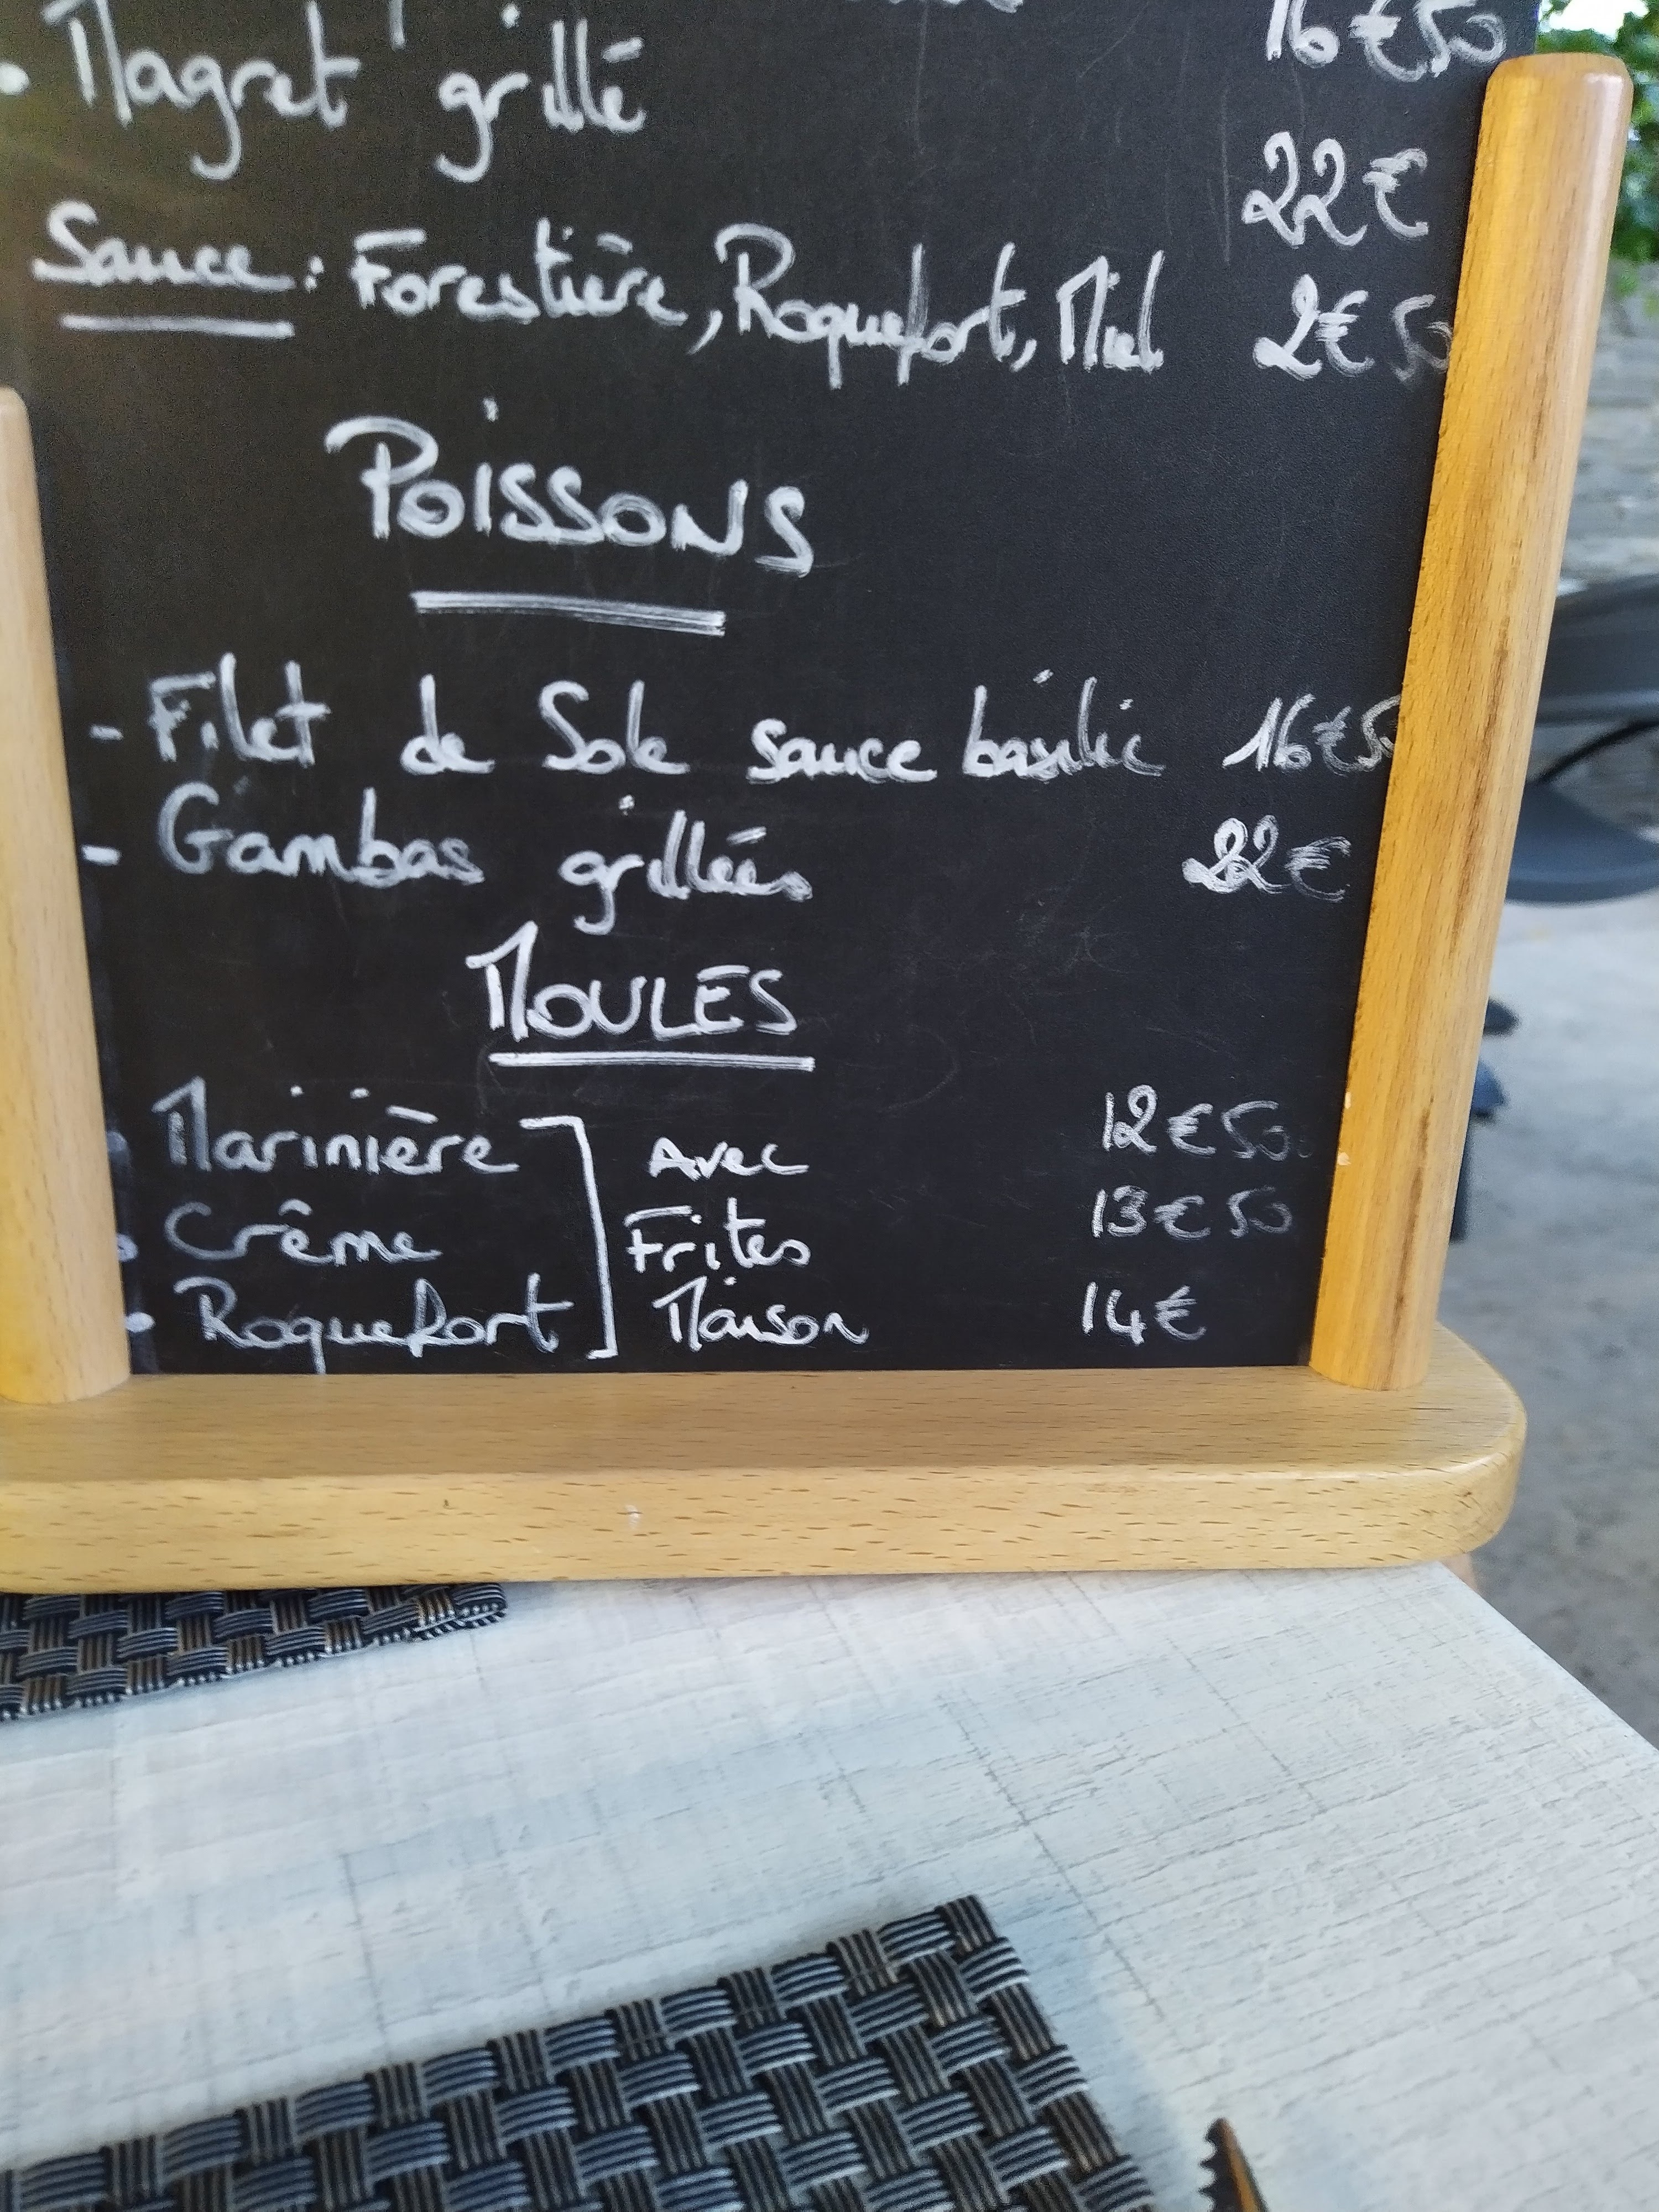 16€50
• Magret grillé 22€
Sauce : Forestière, Roquefort, Miel 2€50
POISSONS
- Filet de Sole sauce basilic 16€50
- Gambas grillées 22€
MOULES
• Marinière ] Avec 12€50
• Crême ] Frites 13€50
• Roquefort ] Maison 14€